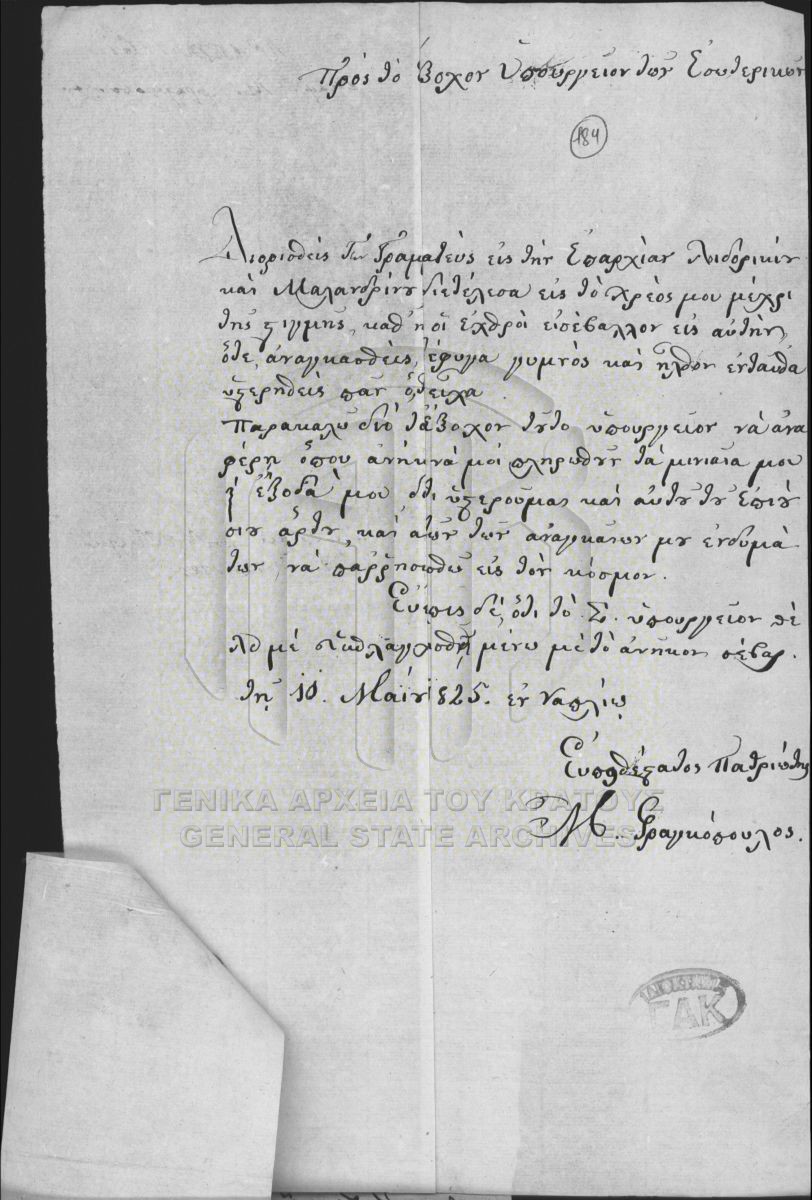 Πρὸς τὸ ἔξοχον Ὑπουργεῖον τῶν Ἐσωτερικῶν
184
Διορισθεὶς Γεν: Γραμματεὺς εἰς τὴν Ἐπαρχίαν Λιδορικίου
καὶ Μαλανδρίνου διετέλεσα εἰς τὸ χρέος μου μέχρι
τῆς στιγμῆς, καθ' ἣ οἱ ἐχθροὶ εἰσέβαλλον εἰς αὐτὴν,
ὅτε ἀναγκασθεὶς, ἔφυγα γυμνὸς καὶ ἦλθον ἐνταῦθα
ὑστερηθεὶς πᾶν ὅ,τι εἶχα.
Παρακαλῶ διὸ τὸ ἔξοχον τοῦτο ὑπουργεῖον νὰ ἀνα
φέρῃ ὅπου ἀνήκει νὰ μοὶ πληρωθοῦν τὰ μηνιαῖα μου
ἢ ἔξοδά μου, ὅτι ὑστεροῦμαι καὶ αὐτοῦ τοῦ ἐπιου
σίου ἄρτου, καὶ αὐτῶν τῶν ἀναγκαίων μου ἐνδυμά
των νὰ παῤῥησιασθῶ εἰς τὸν κόσμον.
Εὔελπις δὲ, ὅτι τὸ Σ. ὑπουργεῖον θέ
λει μὲ σπλαγχνισθῇ μένω μὲ τὸ ἀνῆκον σέβας.
τῇ 11. Μαΐου 1825. ἐν Ναυπλίῳ
Εὐπειθέστατος Πατριώτης
Μ. Φραγκόπουλος.
ΓΕΝΙΚΑ ΑΡΧΕΙΑ ΤΟΥ ΚΡΑΤΟΥΣ
GENERAL STATE ARCHIVES
ΓΑΚ